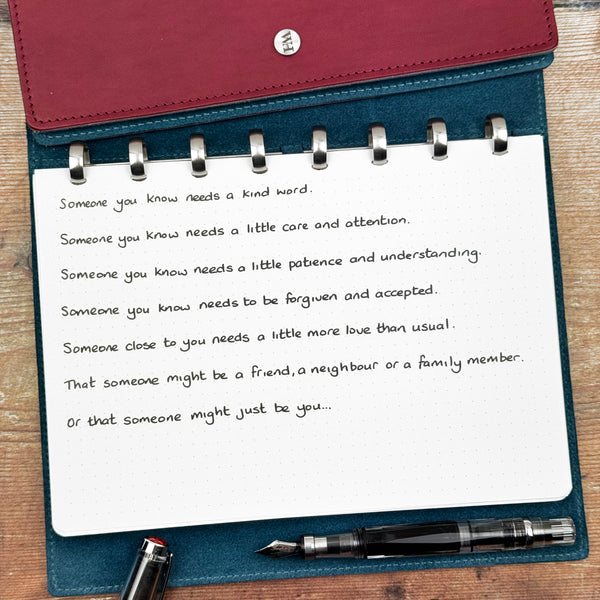 Someone you know needs a kind word.
Someone you know needs a little care and attention.
Someone you know needs a little patience and understanding.
Someone you know needs to be forgiven and accepted.
Someone close to you needs a little more love than usual.
That someone might be a friend, a neighbour or a family member.
Or that someone might just be you...